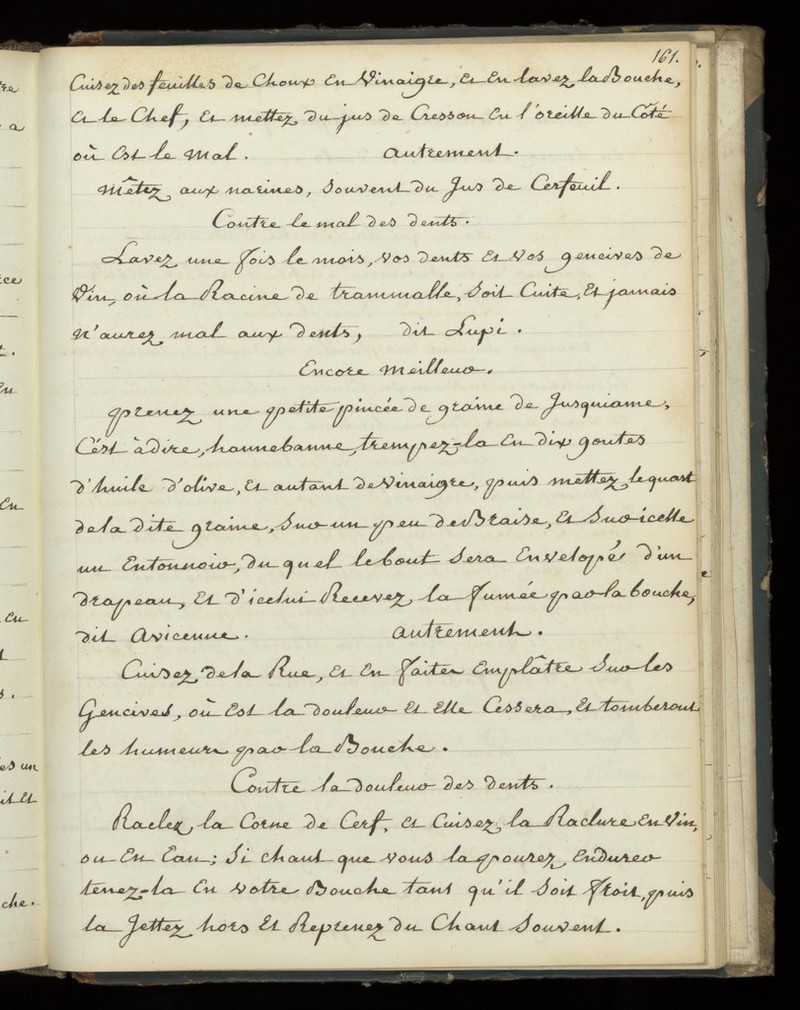 161.
Cuisez des feuilles de Choux En Vinaigre, Et En lavez la Bouche,
Et le Chef, Et mettez du jus de Cresson En l'oreille du Côté
où Est le Mal. autrement.
Mêtez aux narines, Souvent du Jus de Cerfeuil.
Contre le mal des dents.
Lavez une fois le mois, vos dents Et Vos gencives de
Vin, où la Racine de trammalle, Soit Cuite, Et jamais
N'aurez mal aux dents, dit Lupi.
Encore Meilleur.
prenez une petite pincée de graine de Jusquiame,
C'ést à dire, hannebanne, trempez-la En dix goutes
d'huile d'olive, Et autant de Vinaigre, puis mettez le quart
de la dite graine, Sur un peu de Braise, Et Sur icelle
un Entonnoir, du quel le bout Sera Envelopé d'un
drapeau, Et d'icelui Recevez la fumée par la bouche,
dit Avicenne. autrement.
Cuisez de la Rue, Et En faites Emplâtre Sur les
Gencives, où Est la douleur Et Elle Cessera, Et tomberont
les humeurs par la Bouche.
Contre la douleur des dents.
Raclez la Corne de Cerf, Et Cuisez la Raclure En Vin,
ou En Eau; Si chaut que vous la pourez Endurer
tenez-la En votre Bouche tant qu'il Soit froit, puis
la Jettez hors Et Reprenez du Chaut Souvent.